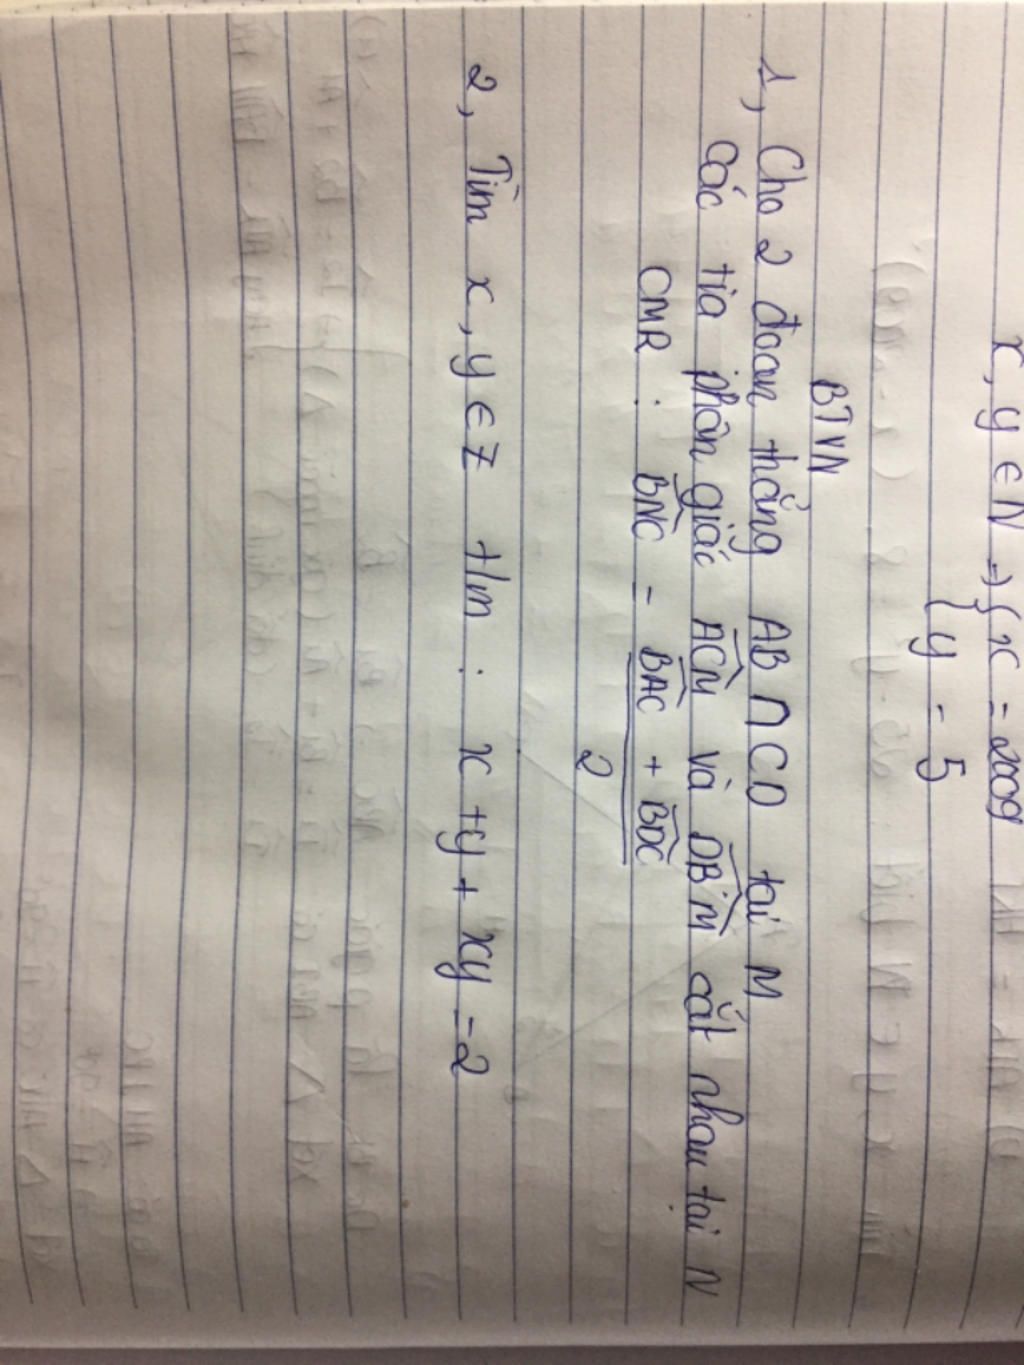 x, y ∈ N ⇒ { x = 2009
{ y = 5
BTVN
1, Cho 2 đoạn thẳng AB ∩ CD tại M
các tia phân giác ACM và DBM cắt nhau tại N
CMR : BNC = BAC + BDC
2
2, Tìm x, y ∈ Z t/m : x + y + xy = 2